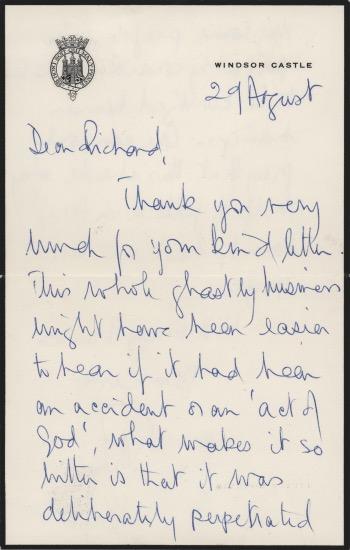 WINDSOR CASTLE
29 August
Dear Richard,
Thank you very
much for your kind letter.
This whole ghastly business
might have been easier
to bear if it had been
an accident or an 'act of
God', what makes it so
bitter is that it was
deliberately perpetrated